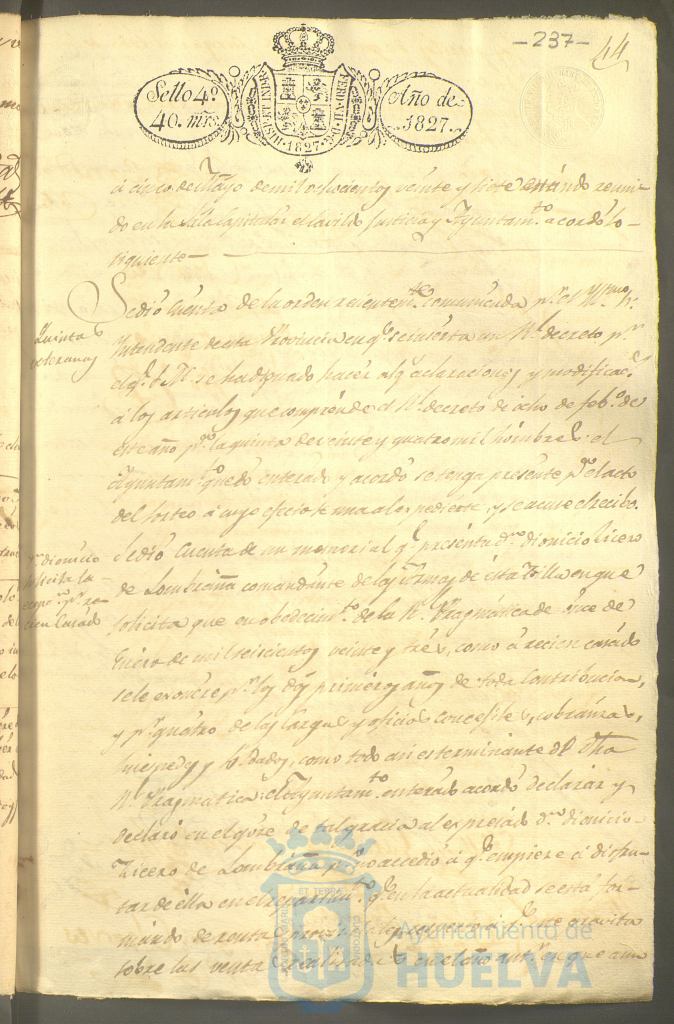 -237- 44
Sello 4º
40. mrs.
HISP. ET IND. R. FERD. VII. D. G. 1827
Año de
1827.
á cinco de Mayo de mil ochocientos veinte y siete estándo reuni-
do en la Sala Capitular el Cavildo Justicia y Ayuntam.to acordó lo
siguiente
Quinta
veteranos
Se dió cuenta de la orden recientem.te comunicada p.r el Yltmo. Sr.
Intendente de esta Provincia en q.e se inserta un R.l decreto p.r
el q.e S. M. se ha dignado hacer alg.s aclaraciones y modificac.s
á los articulos que comprénde el R.l decreto de ocho de feb.o de
este año p.a la quinta de veinte y quatro mil hombres: el
ayuntam.to quedó enterado y acordó se tenga presente p.a el acto
del sorteo á cuyo efecto se una al expediente, y se acuse el recibo.
D.n Dionicio
solicita la
p.r re-
cien Casado
Se dió Cuenta de un memorial q.e presenta d.n dionicio Licero
de Lombraña comandante de las armas de esta Villa en que
solicita que en obedecim.to de la R.l Pragmatica de once de
Enero de mil seiscientos veinte y tres, como á recien casado
se le exonere p.r los dos primeros años de toda Contribucion,
y p.r quatro de las cargas y oficios concegiles, cobranzas,
huespedes y soldados, como todo asi es terminante de dha
R.l Pragmatica: el Ayuntam.to enterado acordó declarar y
declaró en el góze de tal gracia al expresado d.n dionicio
Licero de Lombraña p.o no accedió á q.e empiese á disfru-
tar de ella en el repartim.to q.e en la actualidad se está for-
mando de renta q.e gravita
sobre las ventas realizadas en el año ant.r en que aun
ET TERRAE
Ayuntamiento de
HUELVA